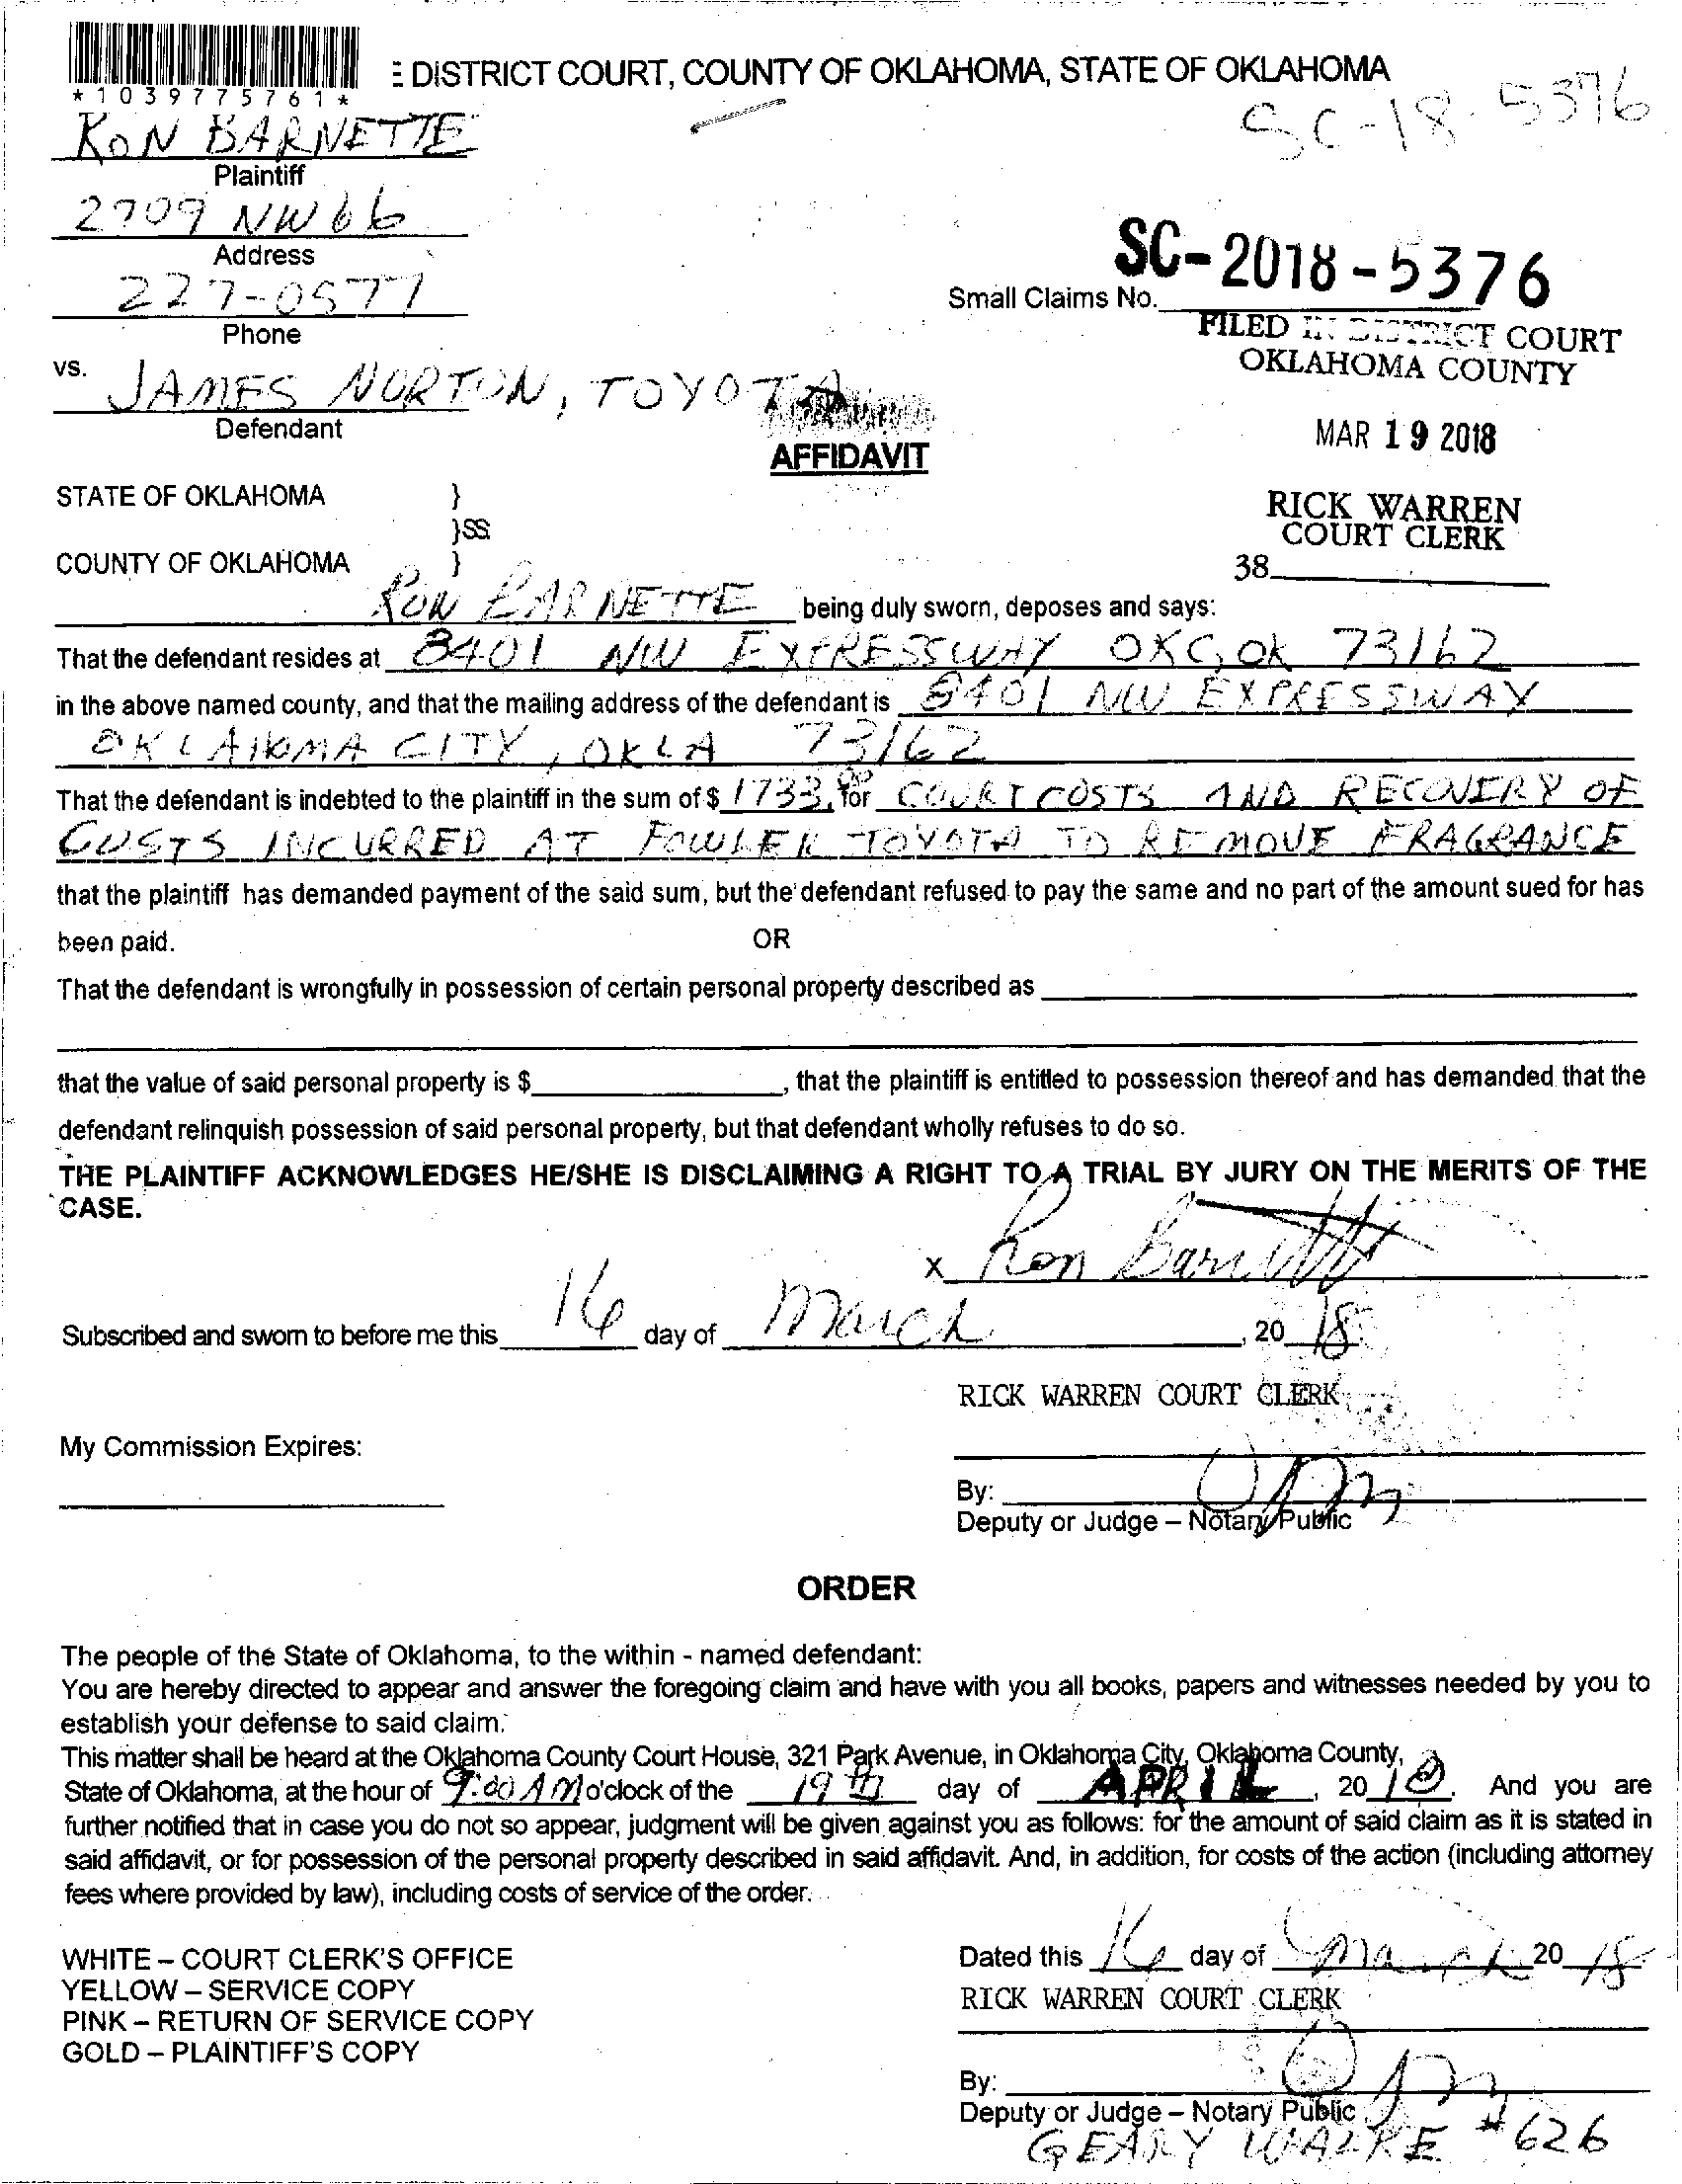 E DISTRICT COURT, COUNTY OF OKLAHOMA, STATE OF OKLAHOMA
*1039775761*
SC-18-5376
RON BARNETTE
Plaintiff
2709 NW 66
Address
227-0577
Phone
SC-2018-5376
Small Claims No.
FILED IN DISTRICT COURT
OKLAHOMA COUNTY
vs. JAMES NORTON, TOYOTA
Defendant
MAR 19 2018
AFFIDAVIT
STATE OF OKLAHOMA }
}SS
COUNTY OF OKLAHOMA }
RICK WARREN
COURT CLERK
38
RON BARNETTE being duly sworn, deposes and says:
That the defendant resides at 8401 NW EXPRESSWAY OKC, OK 73162
in the above named county, and that the mailing address of the defendant is 8401 NW EXPRESSWAY
OKLAHOMA CITY, OKLA 73162
That the defendant is indebted to the plaintiff in the sum of $ 1733.00 for COURT COSTS AND RECOVERY OF
COSTS INCURRED AT FOWLER TOYOTA TO REMOVE FRAGRANCE
that the plaintiff has demanded payment of the said sum, but the defendant refused to pay the same and no part of the amount sued for has
been paid.
OR
That the defendant is wrongfully in possession of certain personal property described as
that the value of said personal property is $ , that the plaintiff is entitled to possession thereof and has demanded that the
defendant relinquish possession of said personal property, but that defendant wholly refuses to do so.
THE PLAINTIFF ACKNOWLEDGES HE/SHE IS DISCLAIMING A RIGHT TO A TRIAL BY JURY ON THE MERITS OF THE
CASE.
x Ron Barnette
Subscribed and sworn to before me this 16 day of March, 20 18
RICK WARREN COURT CLERK
My Commission Expires:
By:
Deputy or Judge – Notary Public
ORDER
The people of the State of Oklahoma, to the within - named defendant:
You are hereby directed to appear and answer the foregoing claim and have with you all books, papers and witnesses needed by you to
establish your defense to said claim.
This matter shall be heard at the Oklahoma County Court House, 321 Park Avenue, in Oklahoma City, Oklahoma County,
State of Oklahoma, at the hour of 9:00 AM o'clock of the 19th day of APRIL, 20 18. And you are
further notified that in case you do not so appear, judgment will be given against you as follows: for the amount of said claim as it is stated in
said affidavit, or for possession of the personal property described in said affidavit. And, in addition, for costs of the action (including attorney
fees where provided by law), including costs of service of the order.
WHITE – COURT CLERK'S OFFICE
YELLOW – SERVICE COPY
PINK – RETURN OF SERVICE COPY
GOLD – PLAINTIFF'S COPY
Dated this 16 day of March 20 18
RICK WARREN COURT CLERK
By:
Deputy or Judge – Notary Public
GEARY WALKE #626